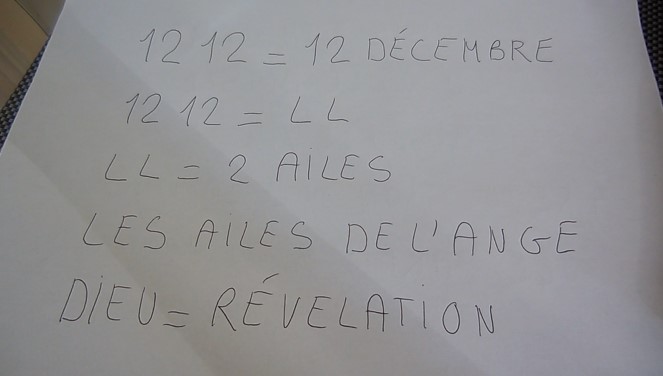 12 12 = 12 DÉCEMBRE
12 12 = LL
LL = 2 AiLES
LES AiLES DE L'ANGE
DiEU = RÉVELATiON